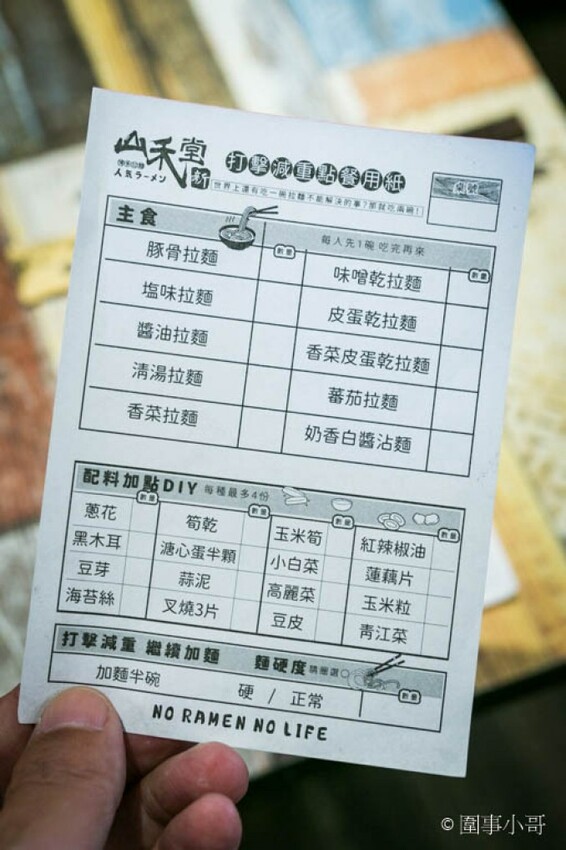 山禾堂
人気ラーメン
新
打擊減重點餐用紙
世界上還有吃一碗拉麵不能解決的事?那就吃兩碗!
桌號
主食 每人先1碗 吃完再來
數量 數量
豚骨拉麵 味噌乾拉麵
塩味拉麵 皮蛋乾拉麵
醬油拉麵 香菜皮蛋乾拉麵
清湯拉麵 蕃茄拉麵
香菜拉麵 奶香白醬沾麵
配料加點DIY 每種最多4份
數量 數量 數量 數量
蔥花 筍乾 玉米筍 紅辣椒油
黑木耳 溏心蛋半顆 小白菜 蓮藕片
豆芽 蒜泥 高麗菜 玉米粒
海苔絲 叉燒3片 豆皮 青江菜
打擊減重 繼續加麵 麵硬度 請圈選○
數量
加麵半碗 硬 / 正常
NO RAMEN NO LIFE
© 圍事小哥